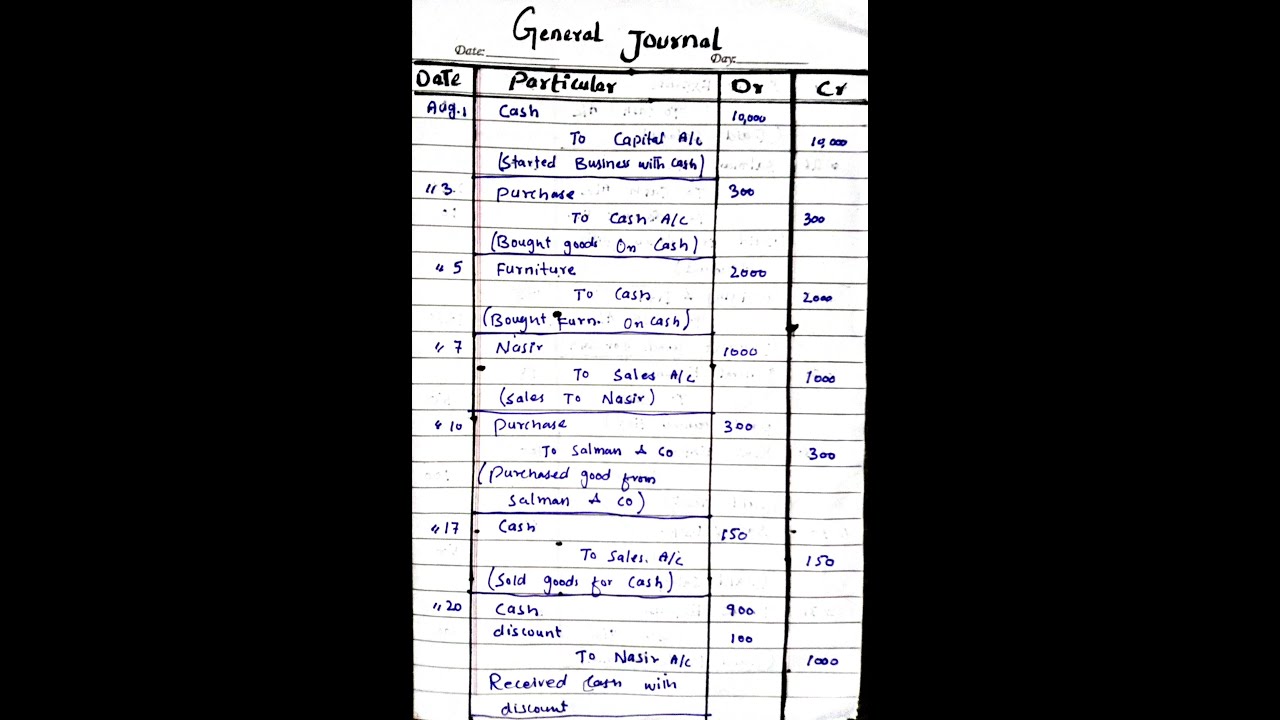 General Journal
Date: Day:
Date Particular Dr Cr
Aug.1 Cash 10,000
To Capital A/c 10,000
(Started Business with Cash)
〃3. Purchase 300
To Cash A/c 300
(Bought goods On Cash)
〃5 Furniture 2000
To Cash 2000
(Bought Furn.: On Cash)
〃7 Nasir 1000
To Sales A/c 1000
(Sales To Nasir)
〃10 Purchase 300
To Salman & Co 300
(Purchased good from
Salman & Co)
〃17 Cash 150
To Sales. A/c 150
(Sold goods for Cash)
〃20 Cash. 900
discount 100
To Nasir A/c 1000
Received Cash with
discount